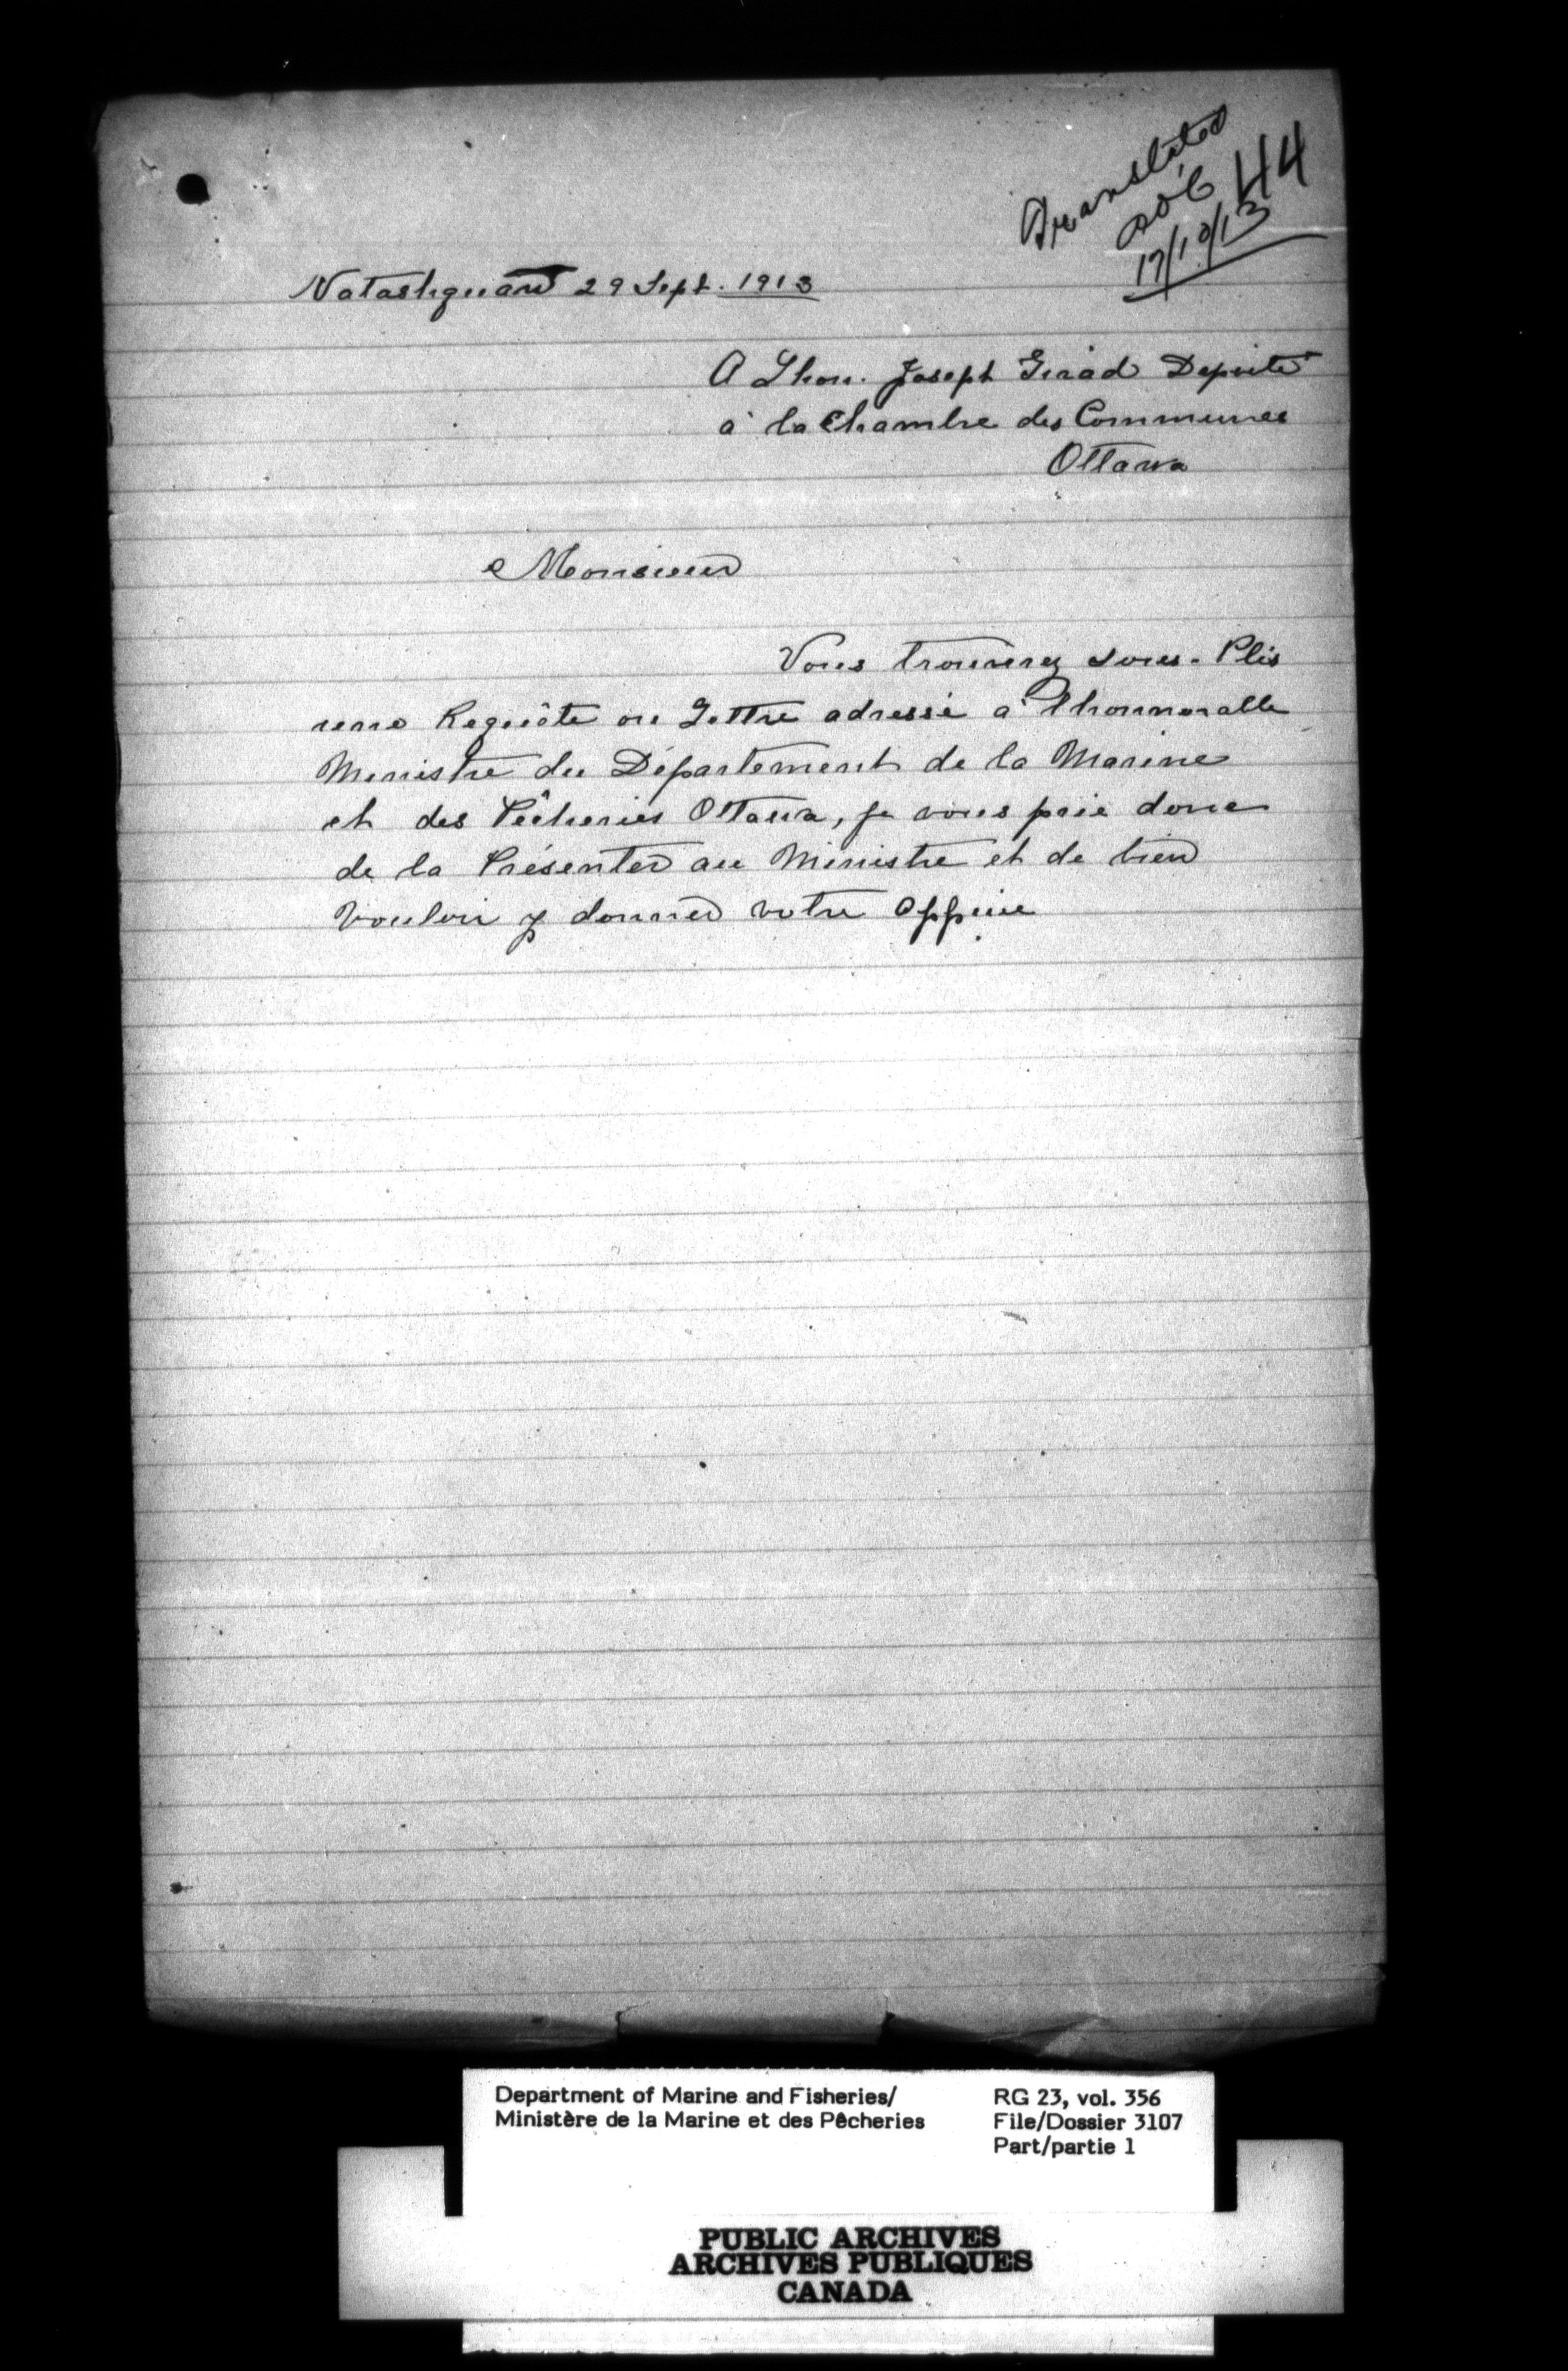 Translated
44
17/10/13
Natashquan 29 Sept. 1913
A Lhon. Joseph Girad Deputé
à la Chambre des Communes
Ottawa
Monsieur
Vous trouverez sous-Plis
une Requête ou Lettre adressé à l'honnorable
Ministre du Département de la Marine
et des Pêcheries Ottawa, je vous prie donc
de la Présenter au Ministre et de bien
vouloir y donner votre appuie
Department of Marine and Fisheries/
Ministère de la Marine et des Pêcheries
RG 23, vol. 356
File/Dossier 3107
Part/partie 1
PUBLIC ARCHIVES
ARCHIVES PUBLIQUES
CANADA